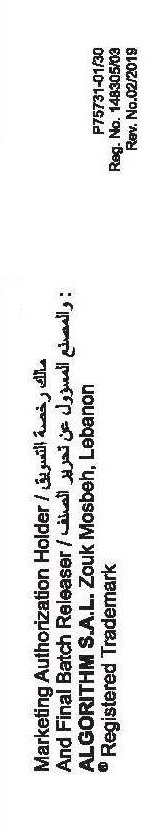 Marketing Authorization Holder / مالك رخصة التسويق
And Final Batch Releaser / والمصنع المسؤول عن تحرير الصنف :
ALGORITHM S.A.L. Zouk Mosbeh, Lebanon
® Registered Trademark
P75731-01/30
Reg. No. 148305/03
Rev. No.02/2019